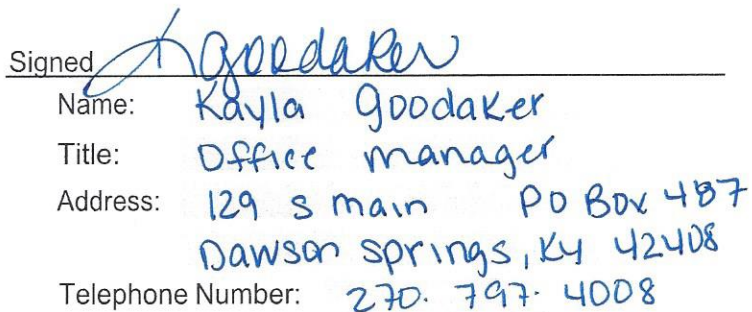 Signed K goodaker
Name: Kayla goodaker
Title: Office manager
Address: 129 s main PO Box 487
Dawson springs, Ky 42408
Telephone Number: 270. 797. 4008